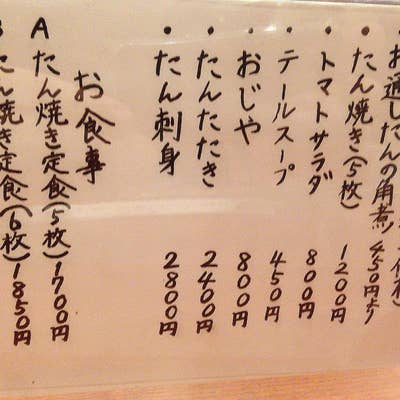 お通したんの角煮 450円より
・たん焼き(5枚) 1200円
・トマトサラダ 800円
・テールスープ 450円
・おじや 800円
・たんたたき 2400円
・たん刺身 2800円
お食事
A たん焼き定食(5枚) 1700円
B たん焼き定食(6枚) 1850円